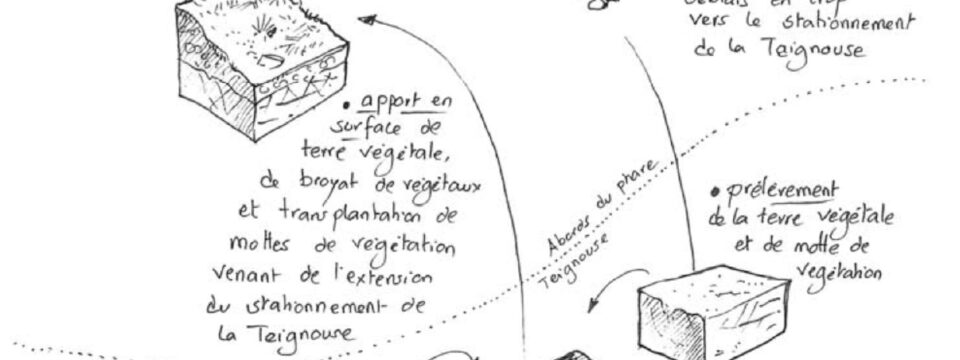 vers le stationnement
de la Teignouse
• apport en
surface de
terre végétale,
de broyat de végétaux
et transplantation de
mottes de végétation
venant de l'extension
du stationnement de
la Teignouse
Abords du phare
Teignouse
• prélèvement
de la terre végétale
et de motte de
végétation